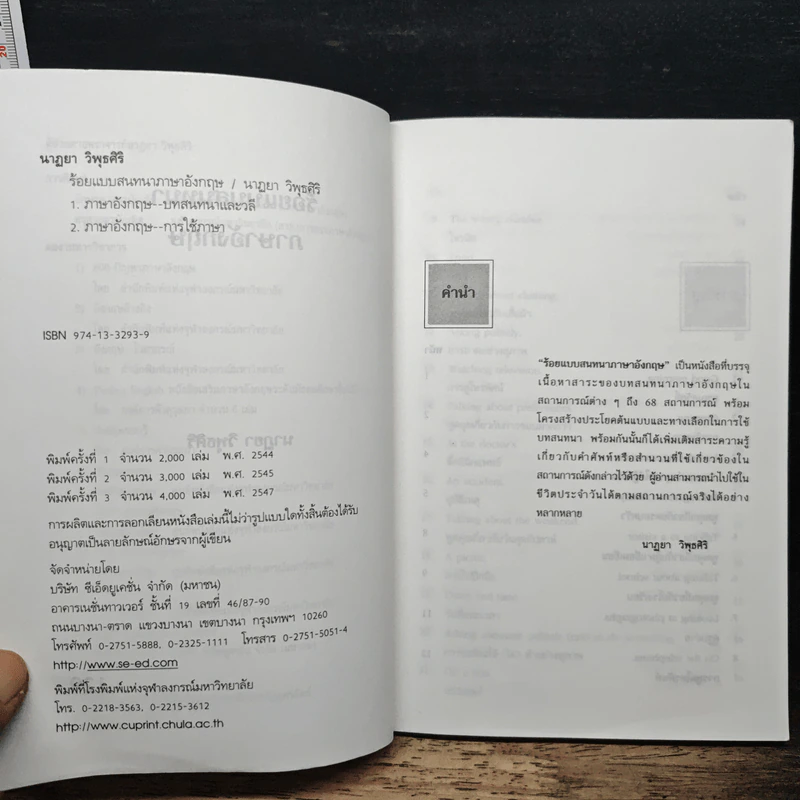 นาฏยา วิพุธศิริ
ร้อยแบบสนทนาภาษาอังกฤษ / นาฏยา วิพุธศิริ
1. ภาษาอังกฤษ--บทสนทนาและวลี
2. ภาษาอังกฤษ--การใช้ภาษา
ISBN 974-13-3293-9
พิมพ์ครั้งที่ 1 จำนวน 2,000 เล่ม พ.ศ. 2544
พิมพ์ครั้งที่ 2 จำนวน 3,000 เล่ม พ.ศ. 2545
พิมพ์ครั้งที่ 3 จำนวน 4,000 เล่ม พ.ศ. 2547
การผลิตและการลอกเลียนหนังสือเล่มนี้ไม่ว่ารูปแบบใดทั้งสิ้นต้องได้รับ
อนุญาตเป็นลายลักษณ์อักษรจากผู้เขียน
จัดจำหน่ายโดย
บริษัท ซีเอ็ดยูเคชั่น จำกัด (มหาชน)
อาคารเนชั่นทาวเวอร์ ชั้นที่ 19 เลขที่ 46/87-90
ถนนบางนา-ตราด แขวงบางนา เขตบางนา กรุงเทพฯ 10260
โทรศัพท์ 0-2751-5888, 0-2325-1111 โทรสาร 0-2751-5051-4
http://www.se-ed.com
พิมพ์ที่โรงพิมพ์แห่งจุฬาลงกรณ์มหาวิทยาลัย
โทร. 0-2218-3563, 0-2215-3612
http://www.cuprint.chula.ac.th
คำนำ
"ร้อยแบบสนทนาภาษาอังกฤษ" เป็นหนังสือที่บรรจุ
เนื้อหาสาระของบทสนทนาภาษาอังกฤษใน
สถานการณ์ต่าง ๆ ถึง 68 สถานการณ์ พร้อม
โครงสร้างประโยคต้นแบบและทางเลือกในการใช้
บทสนทนา พร้อมกันนั้นก็ได้เพิ่มเติมสาระความรู้
เกี่ยวกับคำศัพท์หรือสำนวนที่ใช้เกี่ยวข้องใน
สถานการณ์ดังกล่าวไว้ด้วย ผู้อ่านสามารถนำไปใช้ใน
ชีวิตประจำวันได้ตามสถานการณ์จริงได้อย่าง
หลากหลาย
นาฏยา วิพุธศิริ